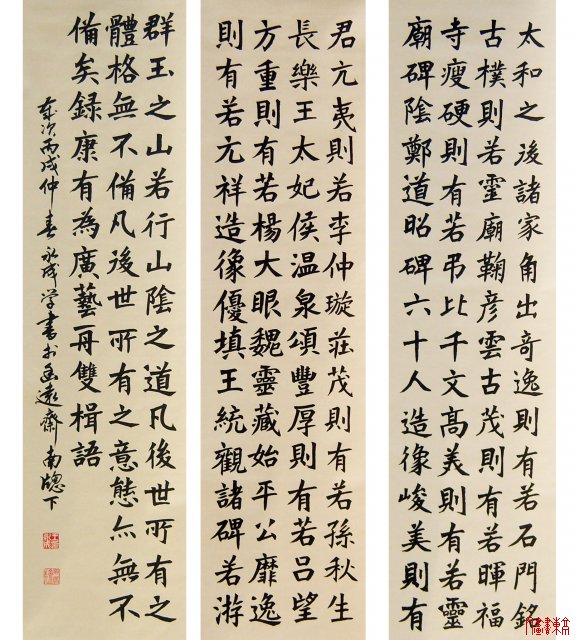 太和之後諸家角出奇逸則有若石門銘
古樸則若靈廟鞠彥雲古茂則有若暉福
寺瘦硬則有若弔比千文高美則有若靈
廟碑陰鄭道昭碑六十人造像峻美則有
君亢夷則若李仲璇莊茂則有若孫秋生
長樂王太妃侯温泉頌豐厚則有若呂望
方重則有若楊大眼魏靈藏始平公靡逸
則有若元祥造像優填王統觀諸碑若游
群玉之山若行山陰之道凡後世所有之
體格無不備凡後世所有之意態亦無不
備矣録康有為廣藝舟雙楫語
歲次丙戌仲春永成学書於遠齋南牕下